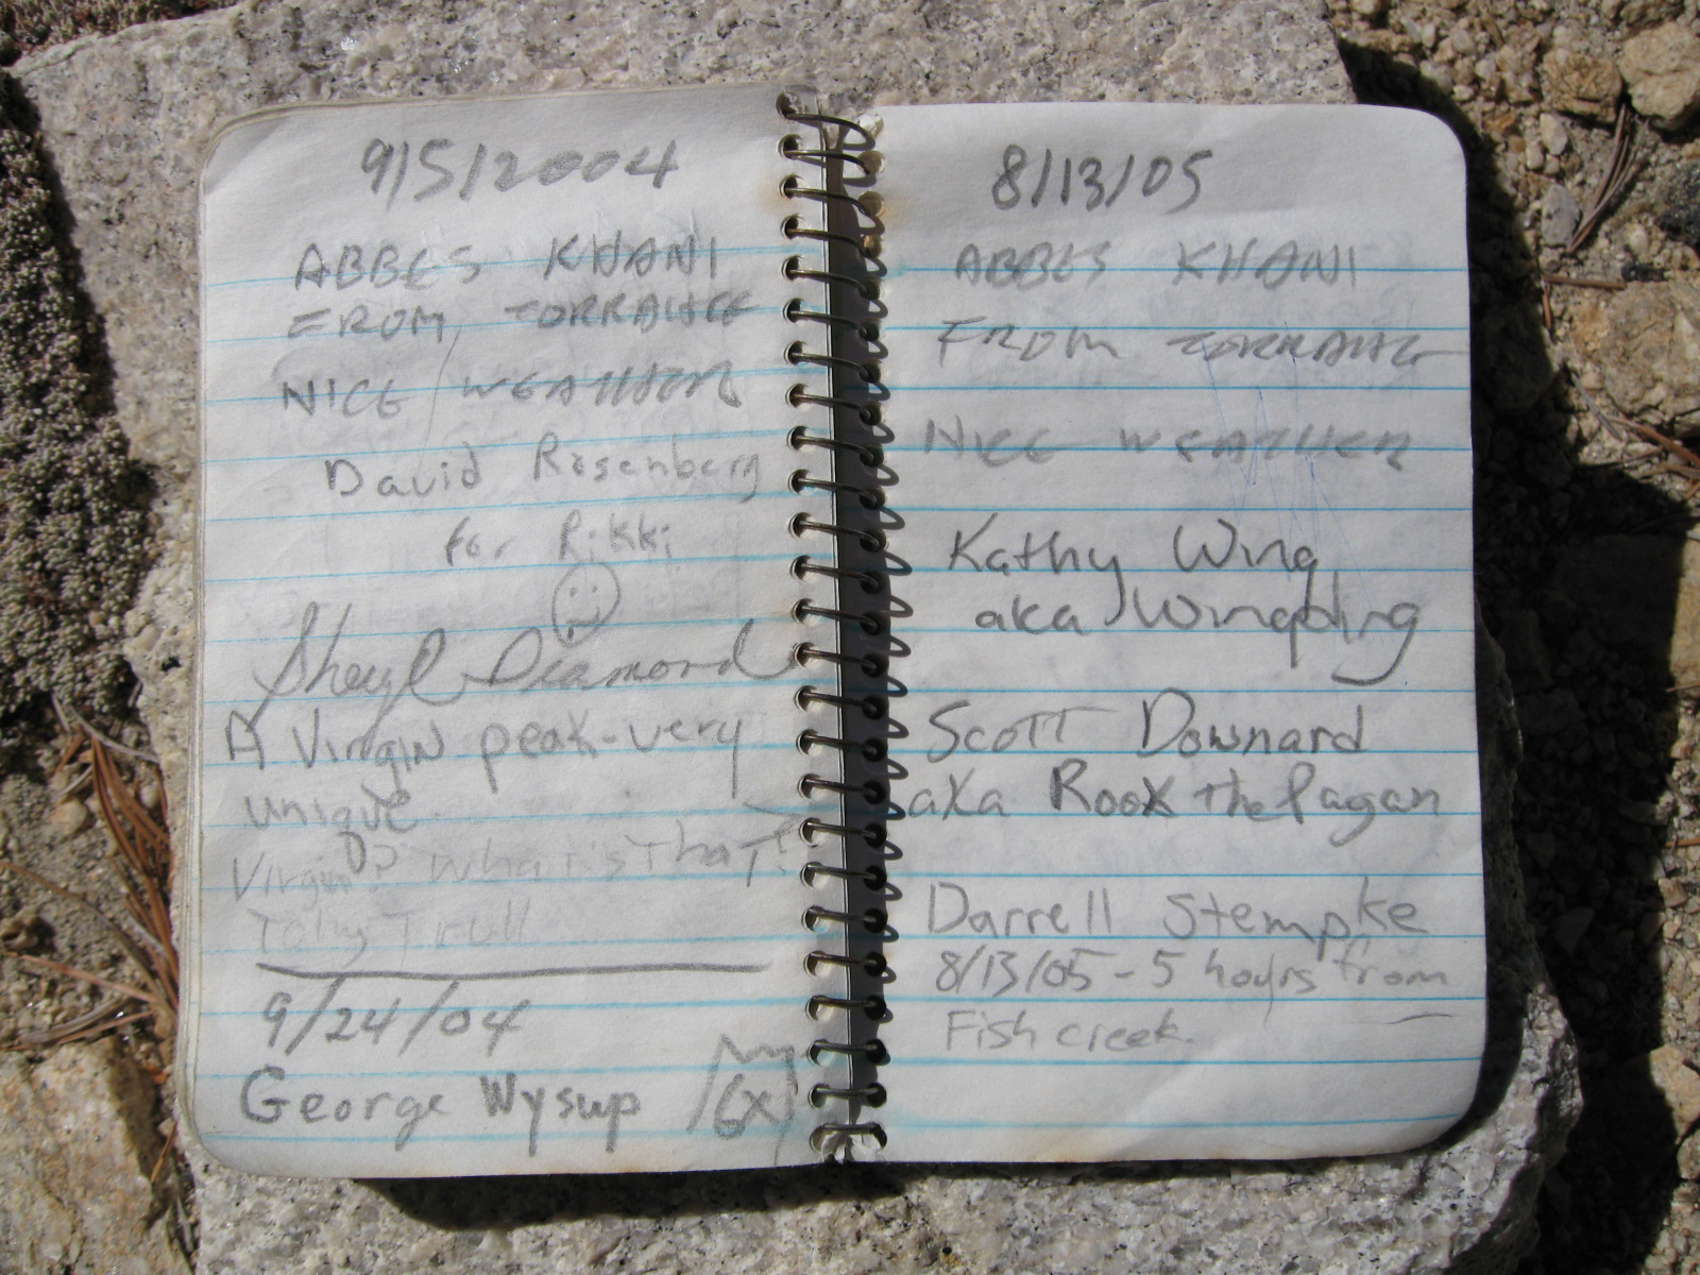 9/5/2004
ABBES KHANI
FROM TORRANCE
NICE WEATHER
David Rosenberg
for Rikki
Sheryl Diamond
A Virgin peak - very
unique
Virgin? What is That?
Toby Trull
9/24/04
George Wysup (6x)
8/13/05
ABBES KHANI
FROM TORRANCE
NICE WEATHER
Kathy Wing
aka Wingding
Scott Downard
aka Rook the Pagan
Darrell Stempke
8/13/05 - 5 hours from
Fish creek.